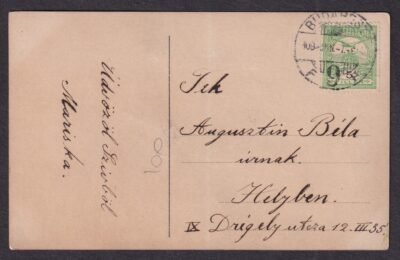 Üdvözöl Szivből
Mariska.
100
Tek
Augusztin Béla
úrnak.
Helyben.
IX Drégely utcza 12. III 35.
BUDAPEST
6